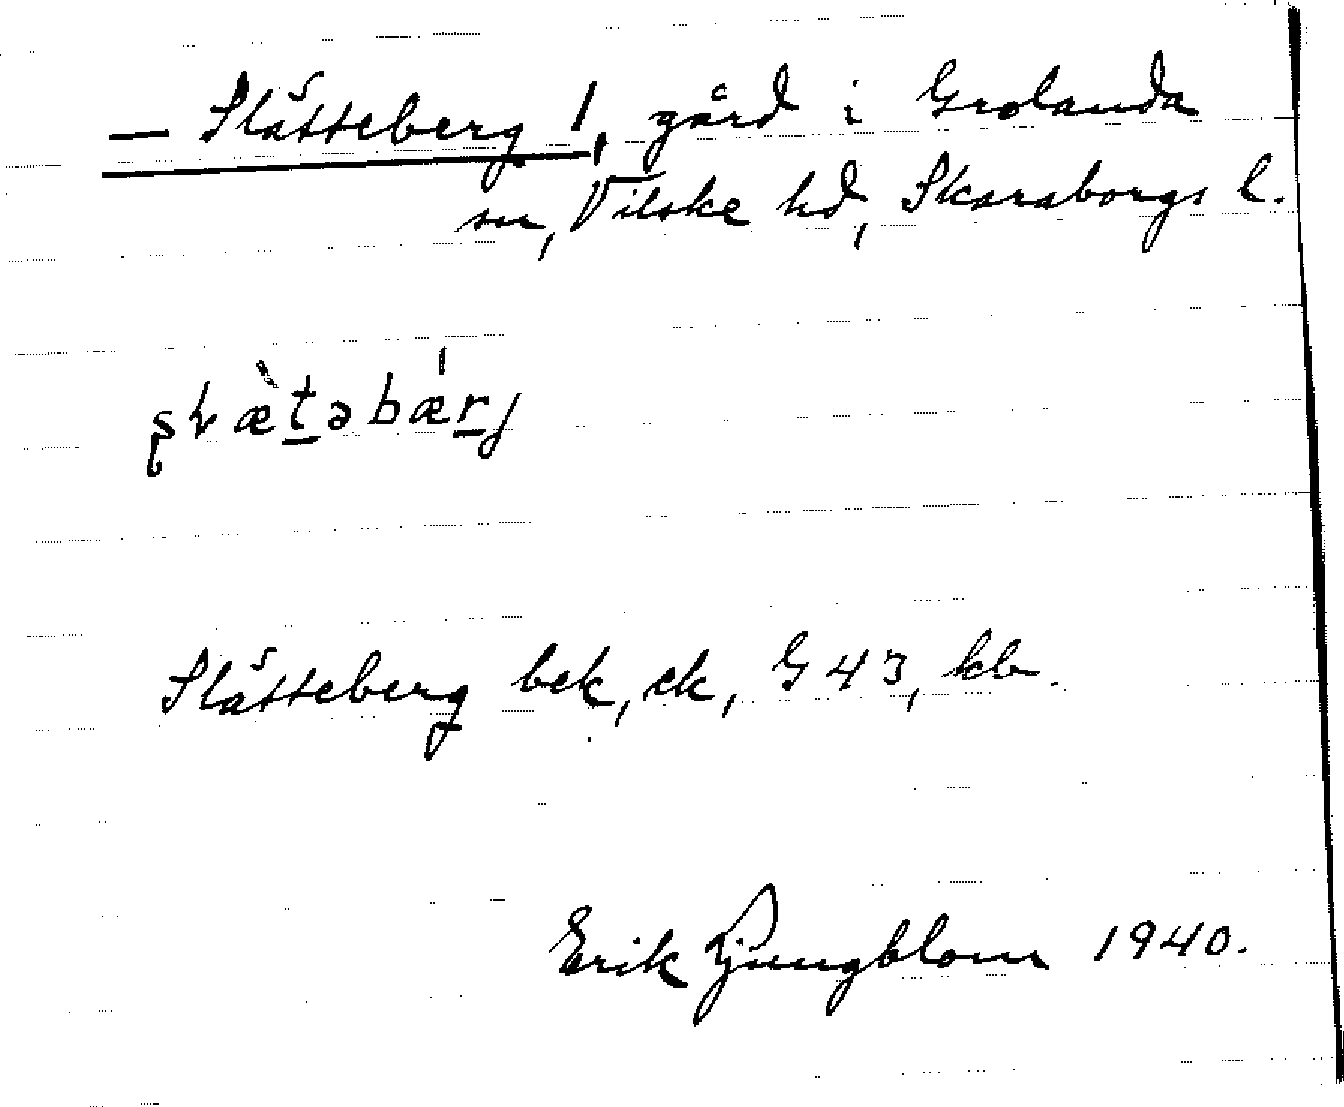 — Slätteberg !, gård i Grolanda
sn, Vilske hd, Skaraborgs l.
Slätteberg bek, ek, G 43, kb.
Erik Ljungblom 1940.